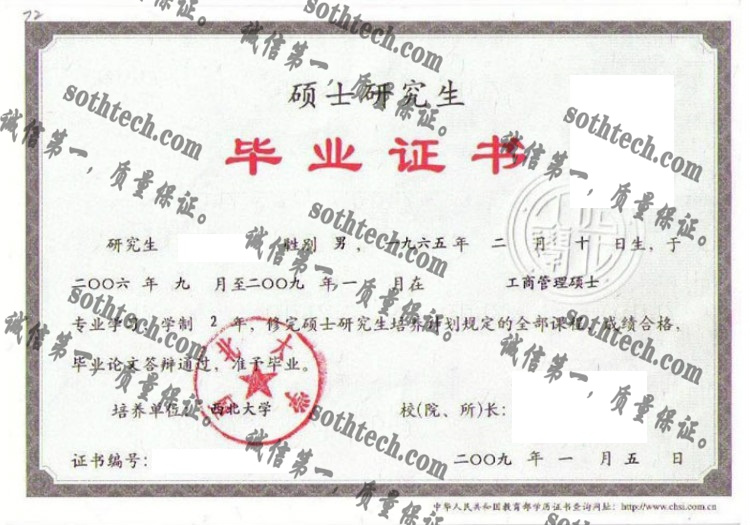 22
硕士研究生
毕业证书
研究生 性别 男，一九六五年 二 月 十 日生，于
二〇〇六 年 九 月至二〇〇九 年 一 月在 工商管理硕士
专业学习，学制 2 年，修完硕士研究生培养计划规定的全部课程，成绩合格，
毕业论文答辩通过，准予毕业。
培养单位：西北大学 校(院、所)长：
证书编号： 二〇〇九 年 一 月 五 日
西北大学
中华人民共和国教育部学历证书查询网址：http://www.chsi.com.cn
sothtech.com
诚信第一，质量保证。
sothtech.com
诚信第一，质量保证。
sothtech.com
诚信第一，质量保证。
sothtech.com
诚信第一，质量保证。
sothtech.com
诚信第一，质量保证。
sothtech.com
诚信第一，质量保证。
sothtech.com
诚信第一，质量保证。
sothtech.com
诚信第一，质量保证。